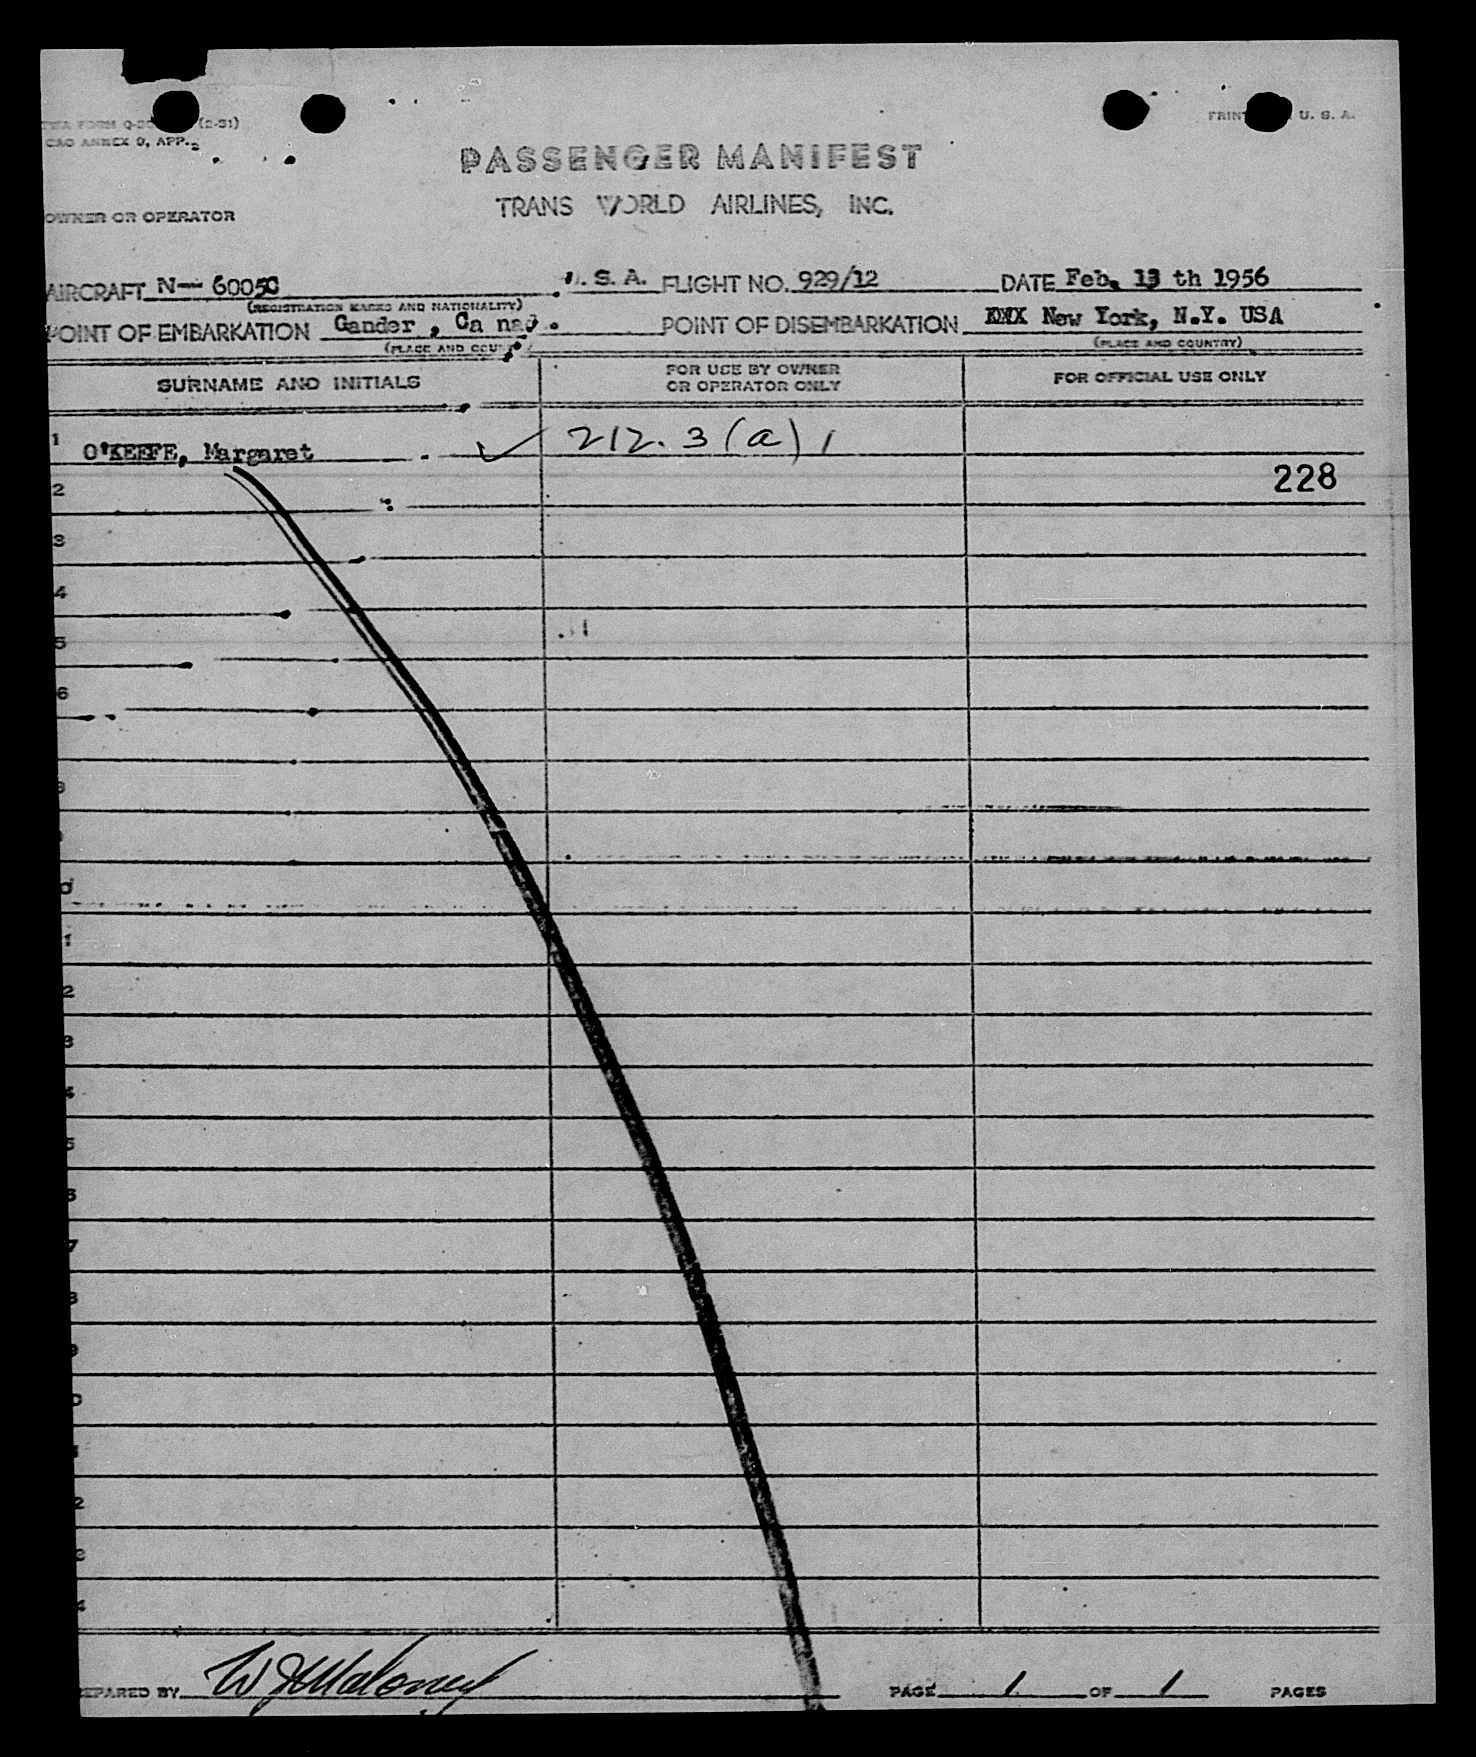 TWA FORM Q-20 (2-51)
PRINT U. S. A.
CAO ANNEX 9, APP.
PASSENGER MANIFEST
TRANS WORLD AIRLINES, INC.
OWNER OR OPERATOR
AIRCRAFT N-- 60050 U. S. A. FLIGHT NO. 929/12 DATE Feb. 13 th 1956
(REGISTRATION MARKS AND NATIONALITY)
POINT OF EMBARKATION Gander , Ca nad . POINT OF DISEMBARKATION XXX New York, N.Y. USA
(PLACE AND COUN (PLACE AND COUNTRY)
SURNAME AND INITIALS
FOR USE BY OWNER
OR OPERATOR ONLY
FOR OFFICIAL USE ONLY
1 O'KEEFE, Margaret ✓ 212. 3 (a) 1
2 228
3
4
5
6
8
0
1
2
3
4
5
6
7
8
9
0
1
2
3
4
EPARED BY W J Maloney PAGE 1 OF 1 PAGES